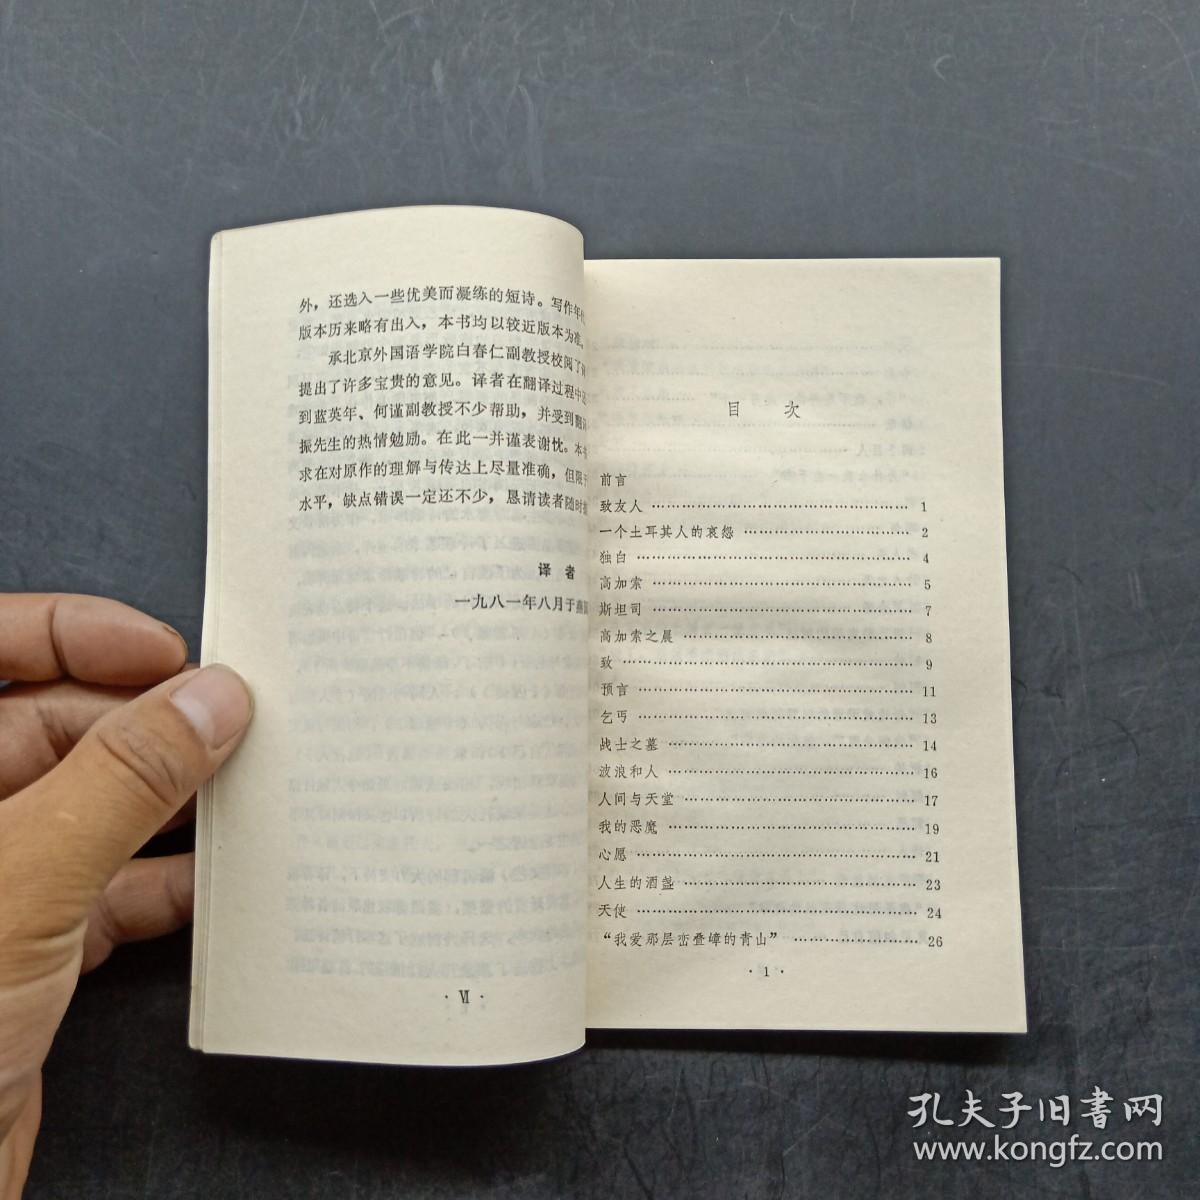 外，还选入一些优美而凝练的短诗。写作年
版本历来略有出入，本书均以较近版本为准。
承北京外国语学院白春仁副教授校阅了
提出了许多宝贵的意见。译者在翻译过程中
到蓝英年、何谨副教授不少帮助，并受到翻
振先生的热情勉励。在此一并谨表谢忱。本
求在对原作的理解与传达上尽量准确，但限于
水平，缺点错误一定还不少，恳请读者随时
译者
一九八一年八月于燕
· Ⅵ ·
目 次
前言
致友人 …… 1
一个土耳其人的哀怨 …… 2
独白 …… 4
高加索 …… 5
斯坦司 …… 7
高加索之晨 …… 8
致 …… 9
预言 …… 11
乞丐 …… 13
战士之墓 …… 14
波浪和人 …… 16
人间与天堂 …… 17
我的恶魔 …… 19
心愿 …… 21
人生的酒盏 …… 23
天使 …… 24
“我爱那层峦叠嶂的青山” …… 26
· 1 ·
孔夫子旧书网
www.kongfz.com